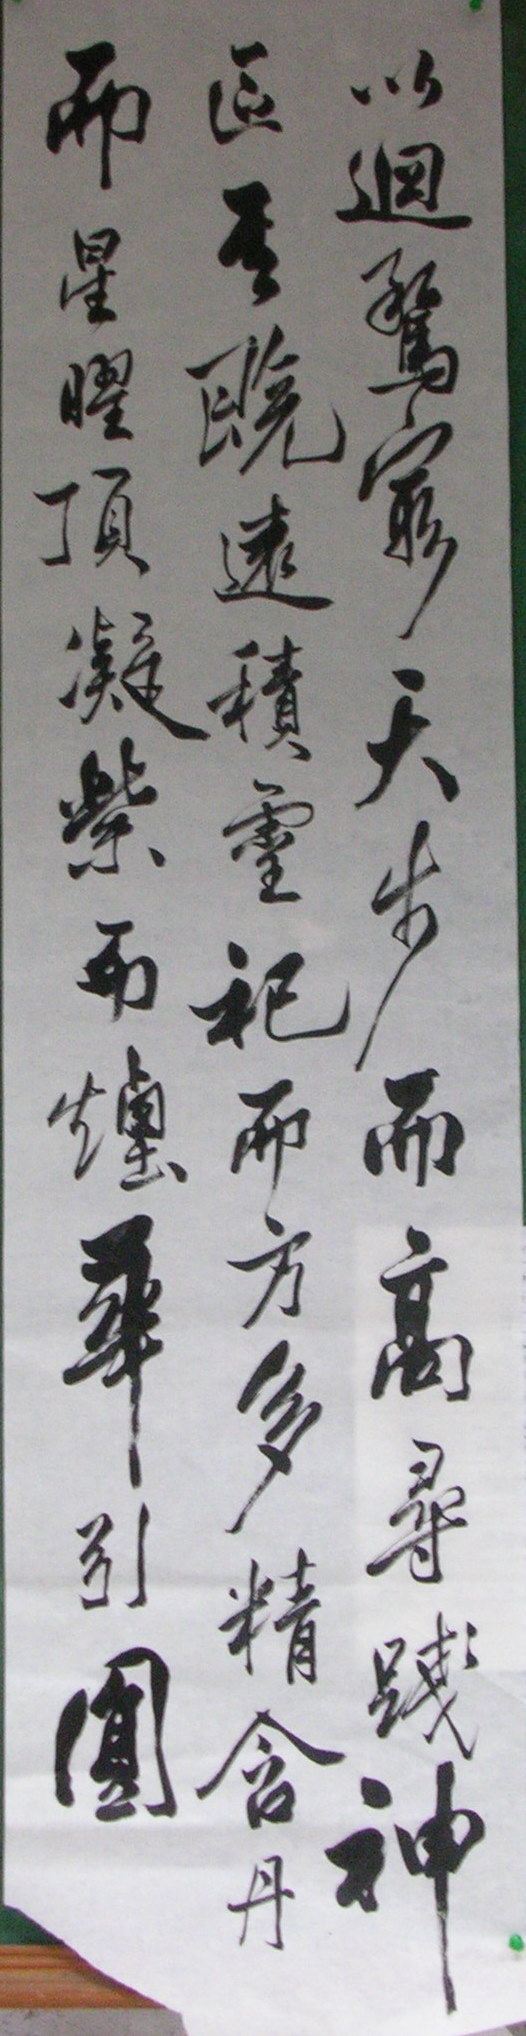 以迴騖窮天步而高尋踐神
區其既遠積靈祀而方多精含丹
而星曜頂凝紫而煙華引圓